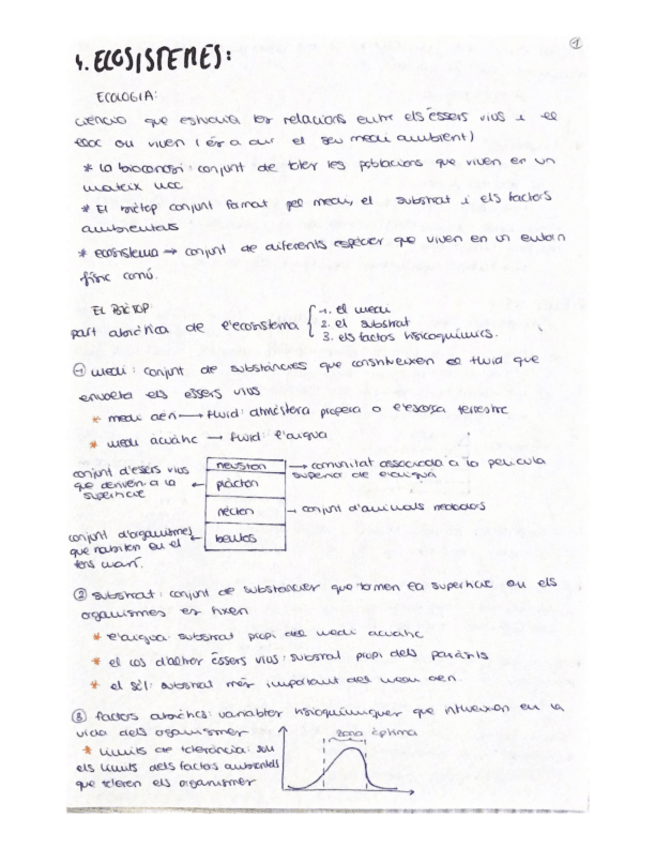 1
4. ECOSISTEMES:
ECOLOGIA:
ciència que estudia les relacions entre els éssers vius i el
lloc on viuen (és a dir el seu medi ambient)
* la biocenosi: conjunt de totes les poblacions que viuen en un
mateix lloc
* El biòtop conjunt format pel medi, el substrat i els factors
ambientals
* ecosistema → conjunt de diferents espècies que viuen en un entorn
físic comú.
EL BIÒTOP:
part abiòtica de l'ecosistema { 1. el medi
2. el substrat
3. els factors fisicoquímics.
① medi: conjunt de substàncies que constitueixen el fluid que
envolta els éssers vius
* medi aeri → fluid: atmosfera propera a l'escorça terrestre
* medi aquàtic → fluid: l'aigua
conjunt d'éssers vius
que deriven a la
superfície
neuston → comunitat associada a la pel·lícula
superior de l'aigua
plàcton
nècton → conjunt d'animals nedadors
bentos
conjunt d'organismes
que habiten en el
fons marí.
② substrat: conjunt de substàncies que formen la superfície on els
organismes es fixen
* l'aigua: substrat propi del medi aquàtic
* el cos d'altres éssers vius: substrat propi dels paràsits
* el sòl: substrat més important del medi aeri.
③ factors abiòtics: variables fisicoquímiques que influeixen en la
vida dels organismes
* límits de tolerància: són
els límits dels factors ambientals
que toleren els organismes
zona òptima